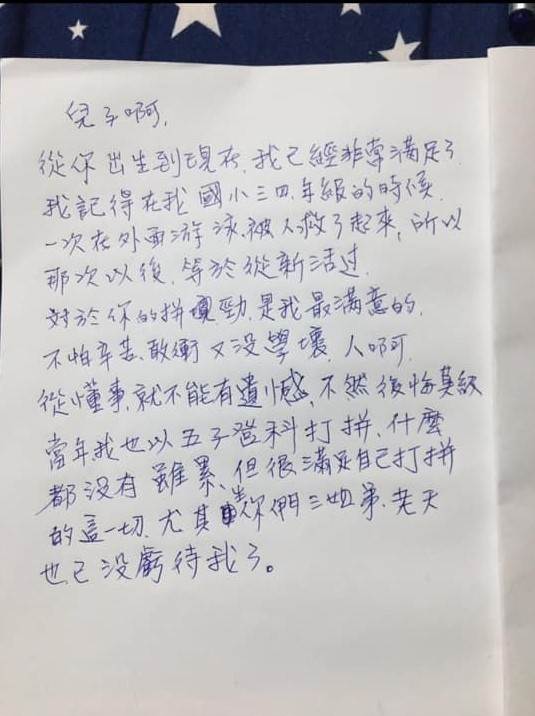 兒子啊,
從你出生到現在,我已經非常滿足了
我記得在我國小三四年級的時候,
一次在外面游泳被人救了起來,所以
那次以後,等於從新活过,
對於你的拼勁,是我最滿意的,
不怕辛苦、敢衝又没學壞,人啊,
從懂事,就不能有遺憾,不然後悔莫及
當年我也以五子登科打拼,什麼
都没有雖累、但很滿足自己打拼
的這一切,尤其生你們三姐弟,老天
也已没虧待我了。